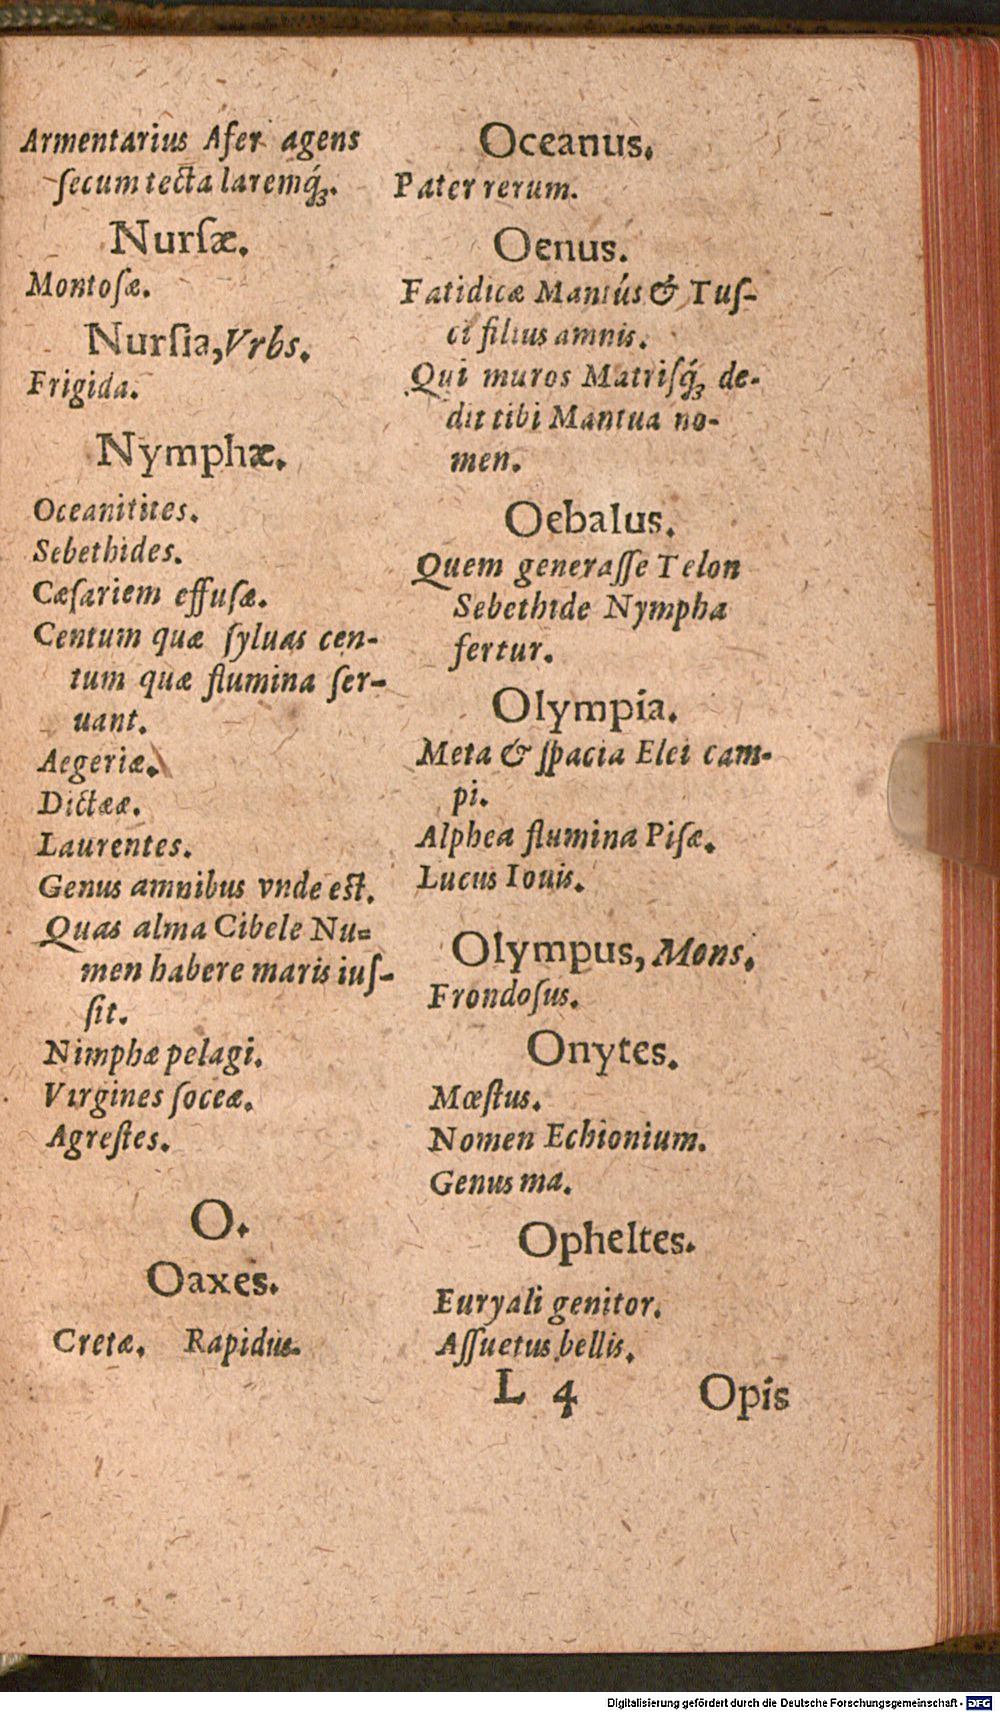 Armentarius Afer agens
ſecum tecta laremq́ꝫ.
Nurſæ.
Montoſæ.
Nurſia, Vrbs.
Frigida.
Nymphæ.
Oceanitites.
Sebethides.
Cæſariem effuſæ.
Centum quæ ſyluas cen-
tum quæ flumina ſer-
uant.
Aegeriæ.
Dictææ.
Laurentes.
Genus amnibus vnde eſt.
Quas alma Cibele Nu=
men habere maris iuſ-
ſit.
Nimphæ pelagi.
Virgines ſoceæ.
Agreſtes.
O.
Oaxes.
Cretæ. Rapidus.
Oceanus.
Pater rerum.
Oenus.
Fatidicæ Mantús & Tuſ-
ci filius amnis.
Qui muros Matriſq́ꝫ de-
dit tibi Mantua no-
men.
Oebalus.
Quem generaſſe Telon
Sebethide Nympha
fertur.
Olympia.
Meta & ſpacia Elei cam-
pi.
Alphea flumina Piſæ.
Lucus Iouis.
Olympus, Mons.
Frondoſus.
Onytes.
Mœſtus.
Nomen Echionium.
Genus ma.
Opheltes.
Euryali genitor.
Aſſuetus bellis.
L 4 Opis
Digitalisierung gefördert durch die Deutsche Forschungsgemeinschaft - DFG